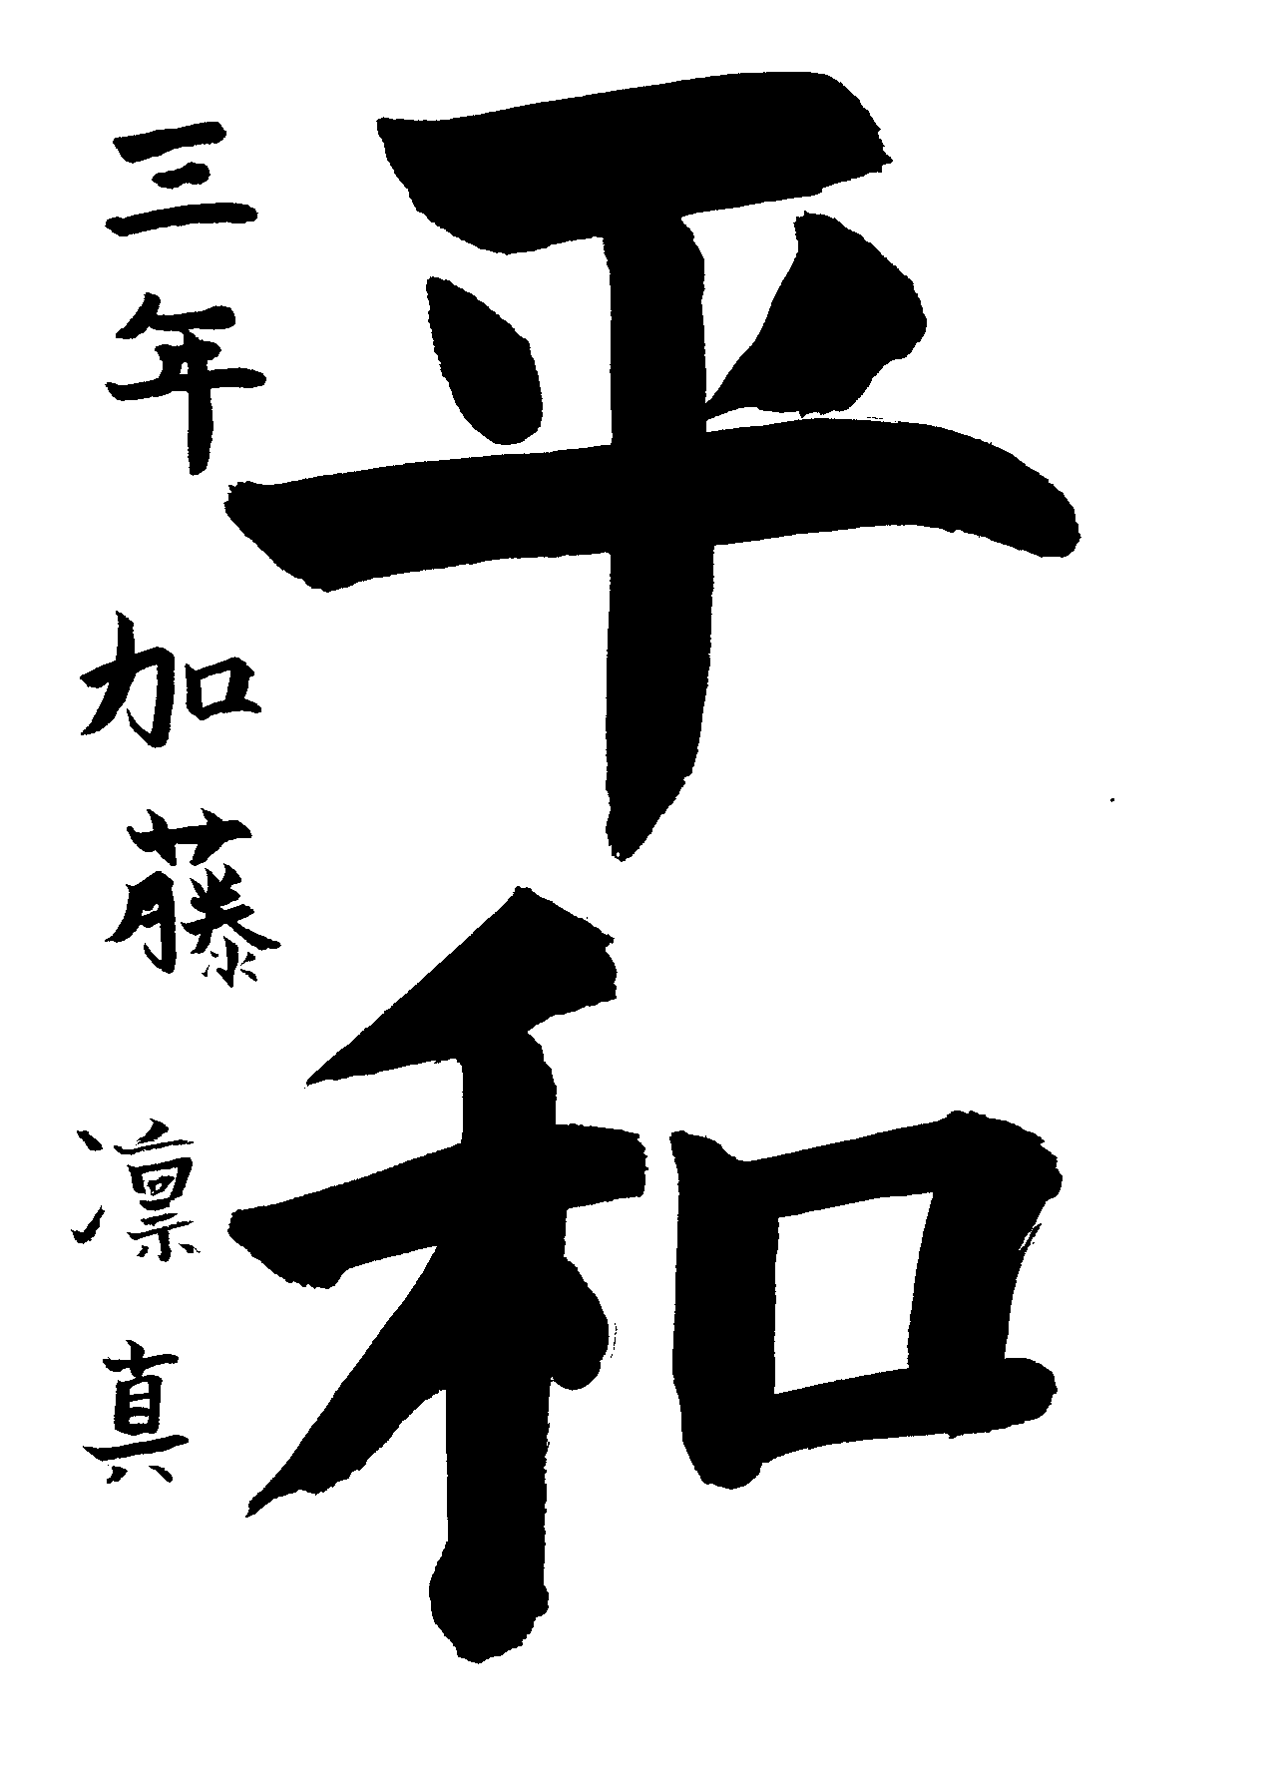 平和
三年 加藤 凛真